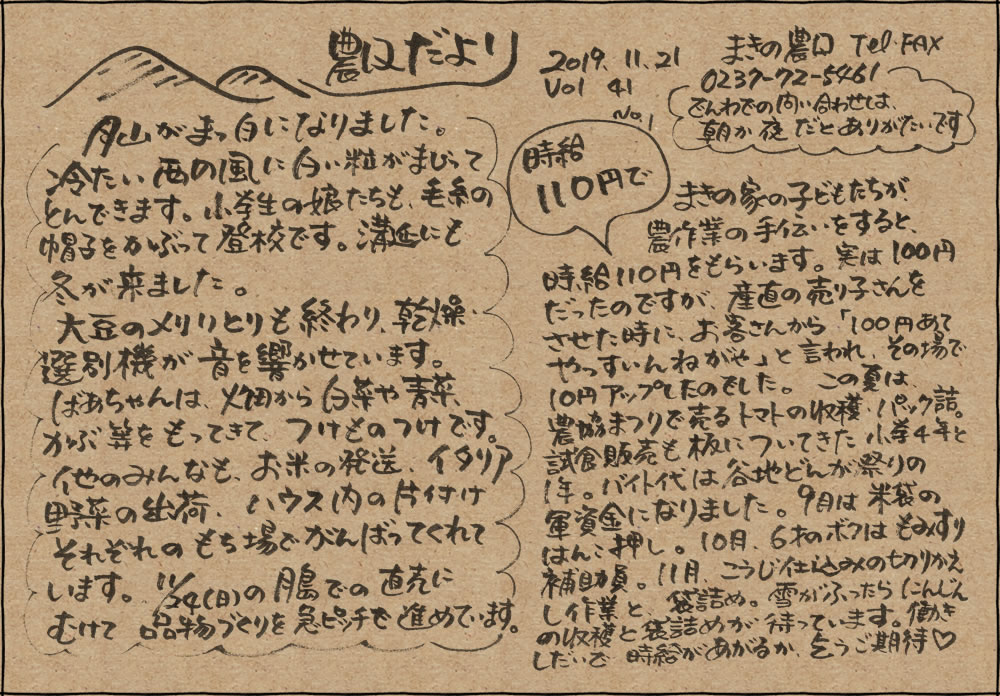 農口だより
2019.11.21
Vol 41
No.1
まきの農口 Tel・FAX
0237-72-5461
でんわでの問い合わせは、
朝か夜だとありがたいです
月山がまっ白になりました。
冷たい西の風に白い粒がまじって
とんできます。小学生の娘たちも、毛糸の
帽子をかぶって登校です。溝延にも
冬が来ました。
大豆のメリリとりも終わり、乾燥・
選別機が音を響かせています。
ばあちゃんは、畑から白菜や青菜、
かぶ等をもってきて、つけものつけです。
他のみんなも、お米の発送、イタリア
野菜の出荷、ハウス内の片付け
それぞれのもち場でがんばってくれて
います。11/24(日)の月島での直売に
むけて品物づくりを急ピッチで進めています。
時給
110円で
まきの家の子どもたちが、
農作業の手伝いをすると、
時給110円をもらいます。実は100円
だったのですが、産直の売り子さんを
させた時に、お客さんから「100円あで
やっすいんねがや」と言われ、その場で
10円アップしたのでした。この夏は、
農協まつりで売るトマトの収穫・パック詰。
試食販売も板についてきた小学4年と
1年。バイト代は谷地どんが祭りの
軍資金になりました。9月は米袋の
はんこ押し。10月、6才のボクはもみすり
補助員。11月、こうじ仕込みの切りかえ
し作業と、袋詰め。雪がふったらにんじん
の収穫と袋詰めが待っています。働き
しだいで時給があがるか、乞うご期待♡